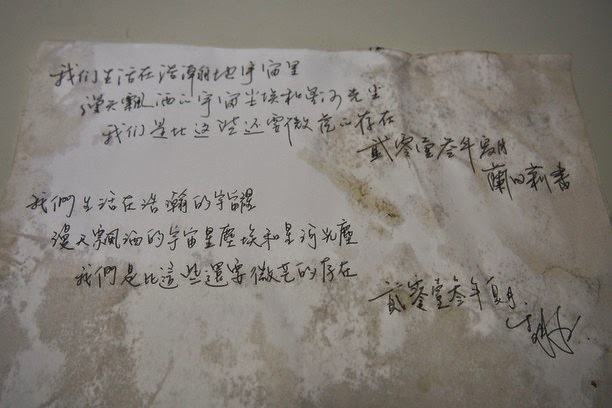 我们生活在浩瀚地宇宙里
漫天飘洒的宇宙尘埃和星河光尘
我们是比这些还要微茫的存在
贰零壹叁年夏月
蘭
書
我們生活在浩瀚的宇宙裡
漫天飄洒的宇宙星塵埃和星河光塵
我們是比這些還要微茫的存在
貳零壹叁年夏月.